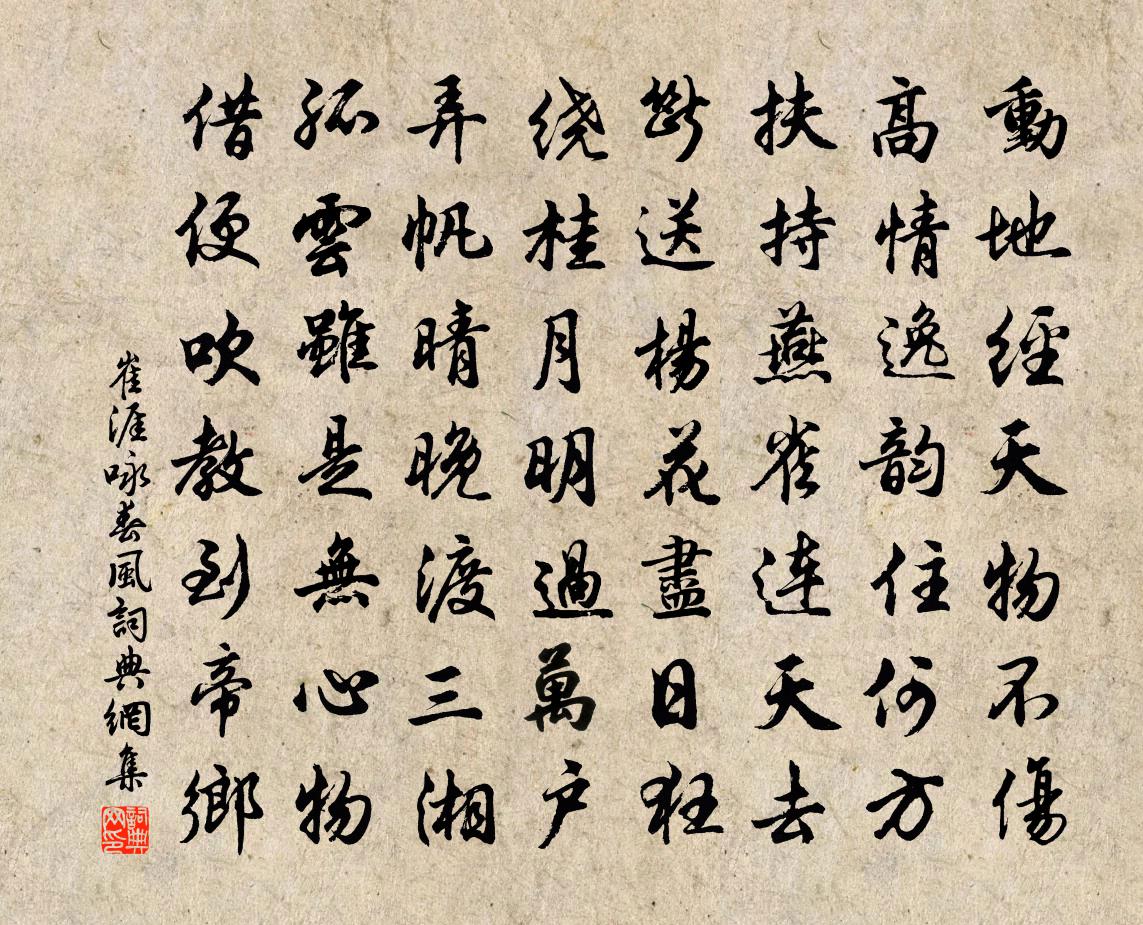 動地經天物不傷
高情逸韵住何方
扶持燕雀連天去
斷送楊花盡日狂
绕桂月明過萬户
弄帆晴晚渡三湘
孤雲雖是無心物
借便吹教到帝鄉
崔涯咏春風詞典網集
詞典网印